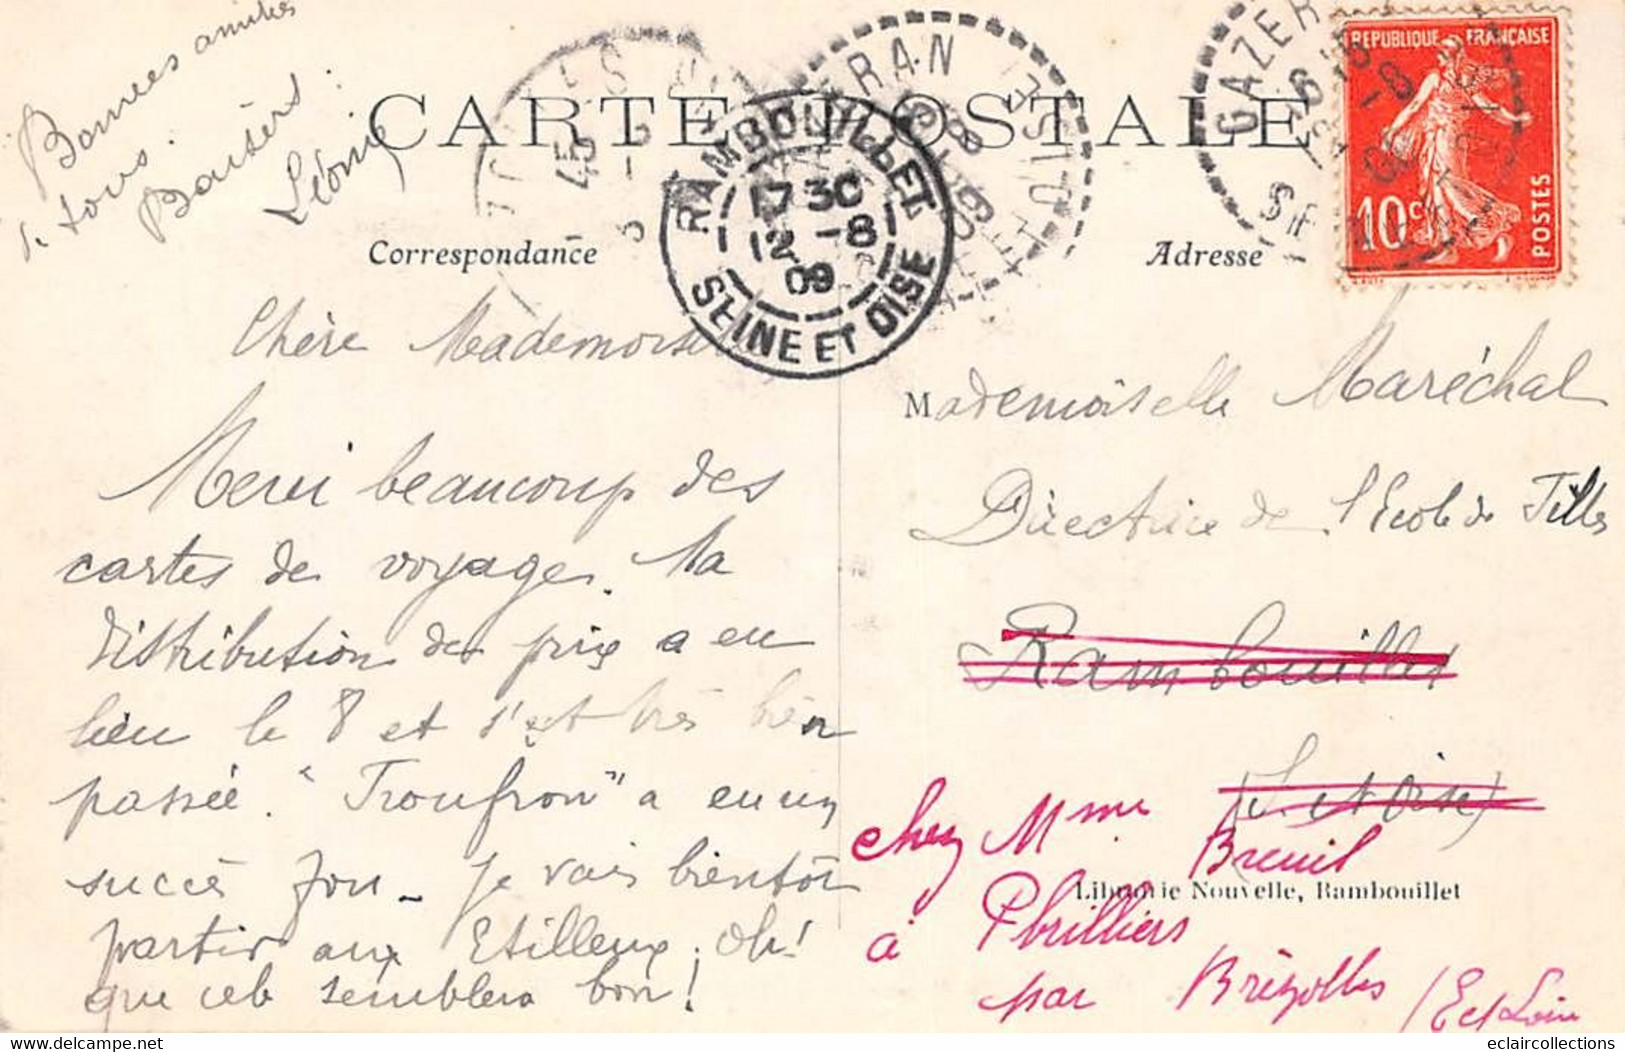 Bonnes amitiés
à tous.
Baisers
Léonie
CARTE POSTALE
Correspondance
Adresse
RAMBOUILLET
17 30
12 -8
09
SEINE ET OISE
GAZER
REPUBLIQUE FRANÇAISE
10c
POSTES
Chère Mademoiselle
Merci beaucoup des
cartes de voyage. La
distribution des prix a eu
lieu le 8 et s'est très bien
passée. "Troufron" a eu un
succès fou _ Je vais bientôt
partir aux Etilleux. Oh!
que cela semblera bon!
Mademoiselle Maréchal
Directrice de l'Ecole de Filles
Rambouillet
(S. et Oise)
chez Mme Breuil
Librairie Nouvelle, Rambouillet
à Pbrilliers
par Brézolles
(E et Loir
eclaircollections